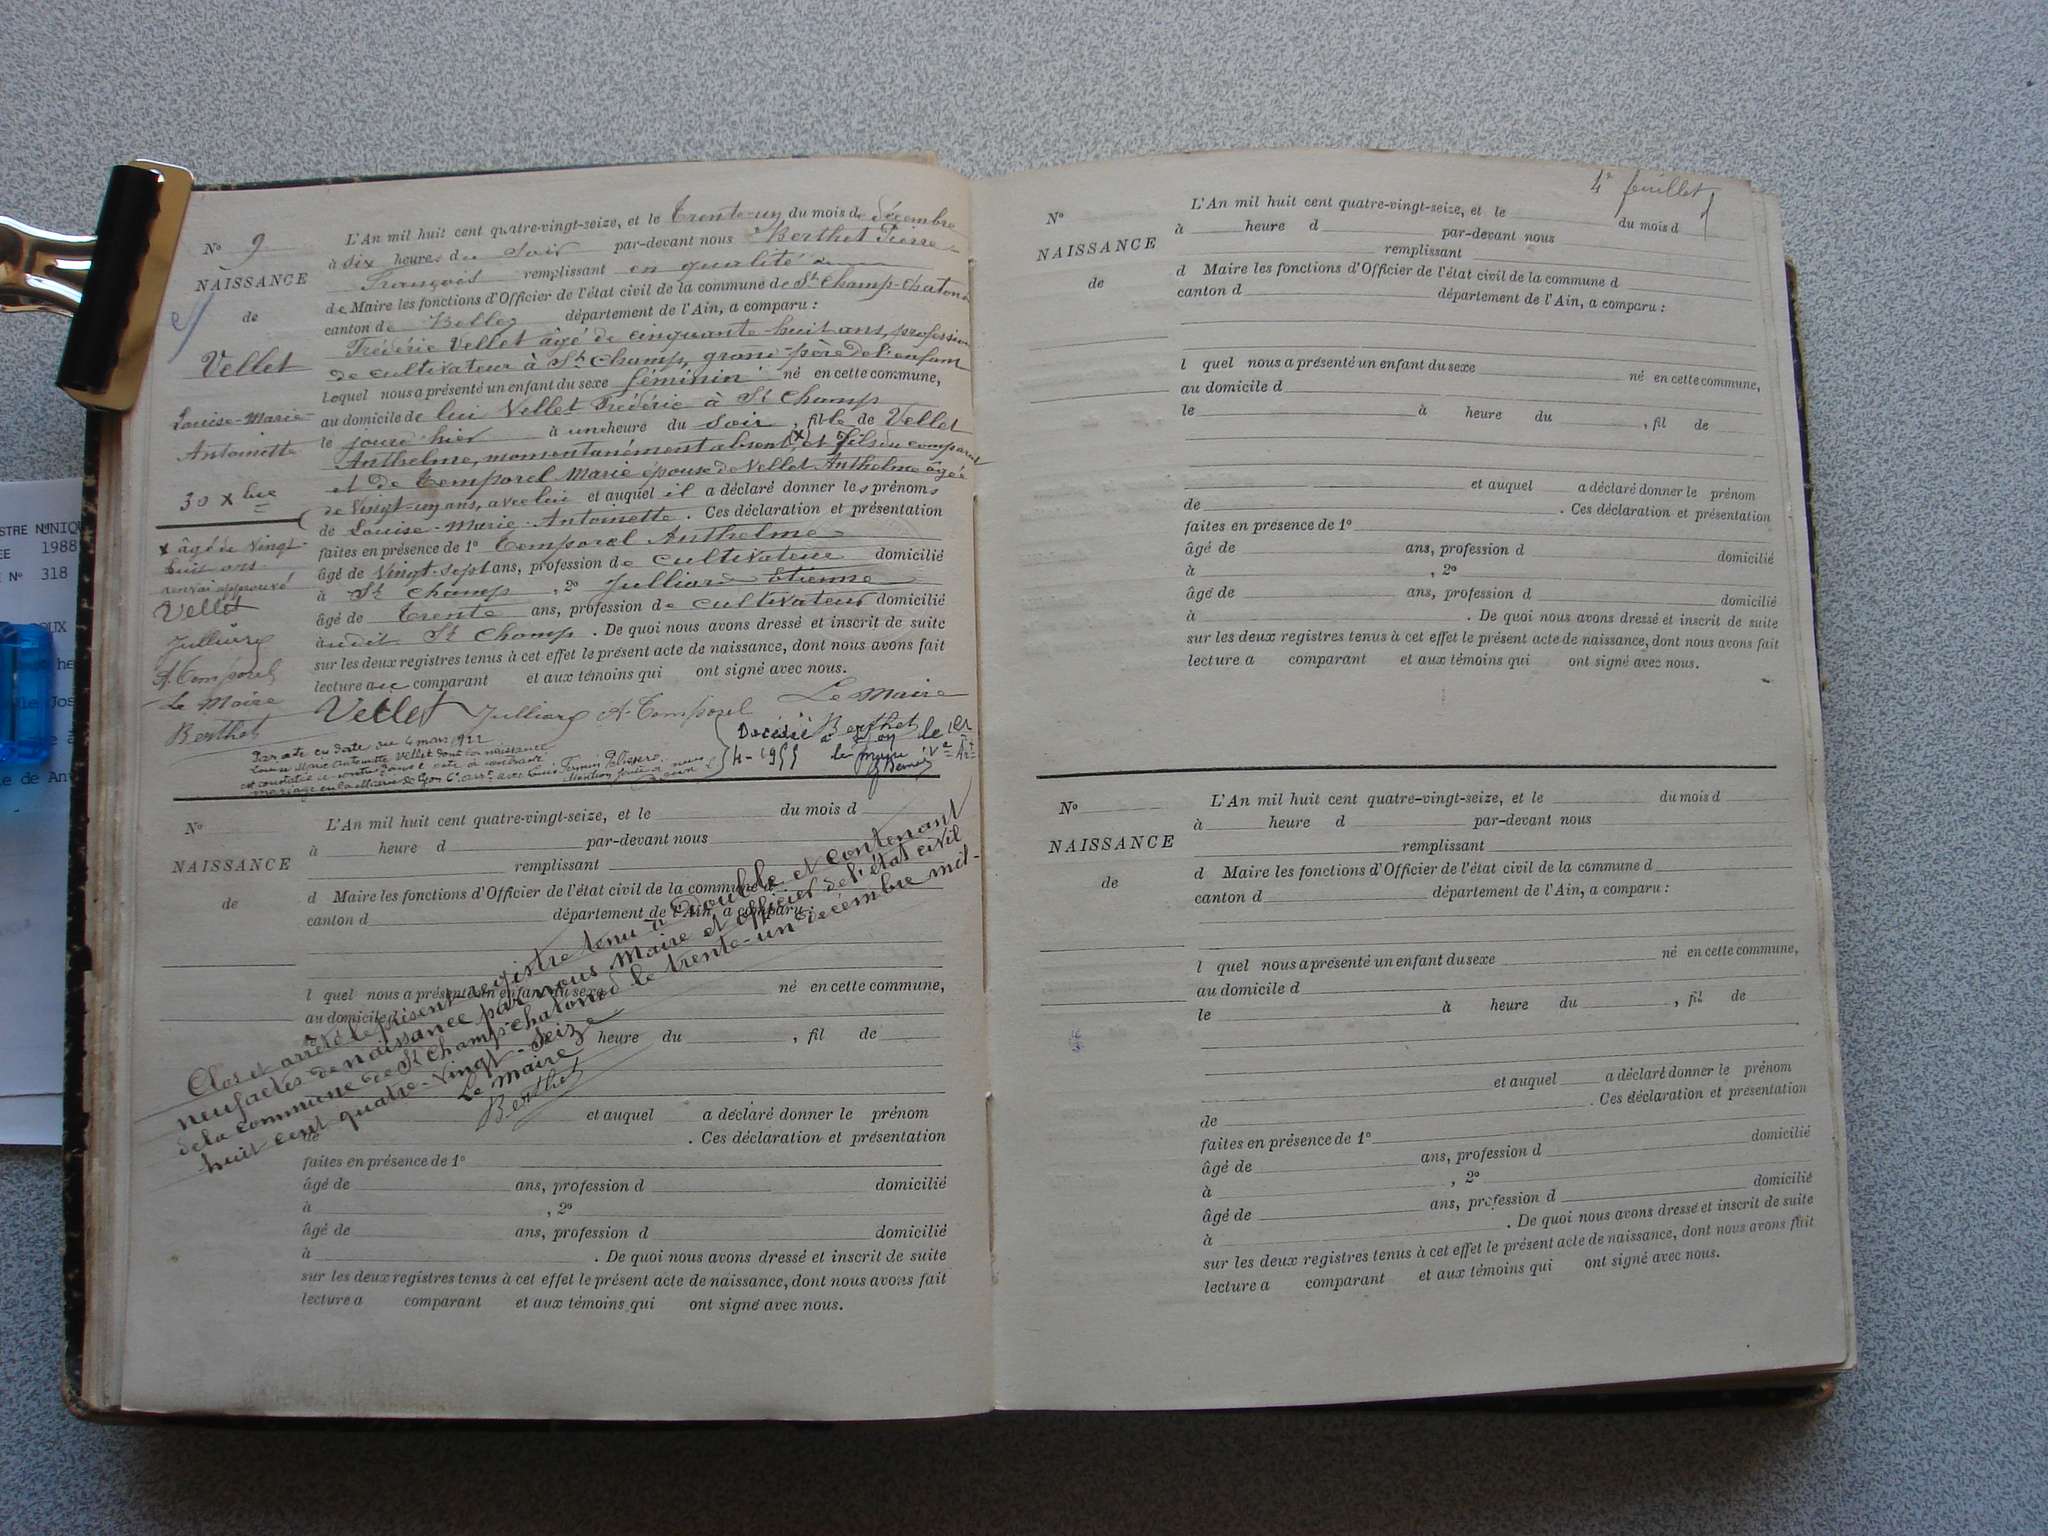 N° 9
NAISSANCE
de
Vellet
Louise-Marie-
Antoinette
30 x bre
x âgé de vingt
huit ans
renvoi approuvé
Vellet
Julliard
A. Temporel
Le Maire
Berthet
L'An mil huit cent quatre-vingt-seize, et le Trente-un du mois de décembre
à six heures du soir par-devant nous Berthet Pierre
François remplissant en qualité
de Maire les fonctions d'Officier de l'état civil de la commune de St Champ-Chatonod
canton de Belley département de l'Ain, a comparu :
Frédéric Vellet âgé de cinquante-huit ans, profession
de cultivateur à St Champ, grand-père de l'enfant
lequel nous a présenté un enfant du sexe féminin né en cette commune,
au domicile de lui Vellet Frédéric à St Champ
le jour d'hier à une heure du soir, fille de Vellet
Anthelme, momentanément absent, x et fils du comparant
et de Temporel Marie épouse de Vellet Anthelme âgée
de vingt-un ans, avec lui et auquel il a déclaré donner les prénoms
de Louise-Marie-Antoinette. Ces déclaration et présentation
faites en présence de 1° Temporel Anthelme
âgé de vingt-sept ans, profession de cultivateur domicilié
à St Champ, 2° Julliard Etienne
âgé de trente ans, profession de cultivateur domicilié
audit St Champ. De quoi nous avons dressé et inscrit de suite
sur les deux registres tenus à cet effet le présent acte de naissance, dont nous avons fait
lecture au comparant et aux témoins qui ont signé avec nous.
Vellet Julliard A. Temporel Le Maire
Berthet
Par acte en date du 4 mars 1922
Louise Marie Antoinette Vellet dont la naissance
est constatée ci-contre dans l'acte a contracté
mariage en la Mairie de Lyon 6e arrt avec Louis Firmin
Mention faite nous
Décédée à Lyon le 1er
4-1955 le
N°
NAISSANCE
de
L'An mil huit cent quatre-vingt-seize, et le du mois d
à heure d par-devant nous
remplissant
d Maire les fonctions d'Officier de l'état civil de la commune d
canton d département de l'Ain, a comparu :
l quel nous a présenté un enfant du sexe né en cette commune,
au domicile d
heure du , fil de
et auquel a déclaré donner le prénom
de . Ces déclaration et présentation
faites en présence de 1°
âgé de ans, profession d domicilié
à , 2°
âgé de ans, profession d domicilié
à . De quoi nous avons dressé et inscrit de suite
sur les deux registres tenus à cet effet le présent acte de naissance, dont nous avons fait
lecture a comparant et aux témoins qui ont signé avec nous.
Clos et arrêté le présent registre tenu à double et contenant
neuf actes de naissance par nous Maire et officier de l'état civil
de la commune de St Champ-Chatonod le trente-un décembre mil-
huit cent quatre-vingt-seize
Le Maire
Berthet
4e feuillet
N°
NAISSANCE
de
L'An mil huit cent quatre-vingt-seize, et le du mois d
à heure d par-devant nous
remplissant
d Maire les fonctions d'Officier de l'état civil de la commune d
canton d département de l'Ain, a comparu :
l quel nous a présenté un enfant du sexe né en cette commune,
au domicile d
le à heure du , fil de
et auquel a déclaré donner le prénom
de . Ces déclaration et présentation
faites en présence de 1°
âgé de ans, profession d domicilié
à , 2°
âgé de ans, profession d domicilié
à . De quoi nous avons dressé et inscrit de suite
sur les deux registres tenus à cet effet le présent acte de naissance, dont nous avons fait
lecture a comparant et aux témoins qui ont signé avec nous.
N°
NAISSANCE
de
L'An mil huit cent quatre-vingt-seize, et le du mois d
à heure d par-devant nous
remplissant
d Maire les fonctions d'Officier de l'état civil de la commune d
canton d département de l'Ain, a comparu :
l quel nous a présenté un enfant du sexe né en cette commune,
au domicile d
le à heure du , fil de
et auquel a déclaré donner le prénom
de . Ces déclaration et présentation
faites en présence de 1°
âgé de ans, profession d domicilié
à , 2°
âgé de ans, profession d domicilié
à . De quoi nous avons dressé et inscrit de suite
sur les deux registres tenus à cet effet le présent acte de naissance, dont nous avons fait
lecture a comparant et aux témoins qui ont signé avec nous.
1988
N° 318